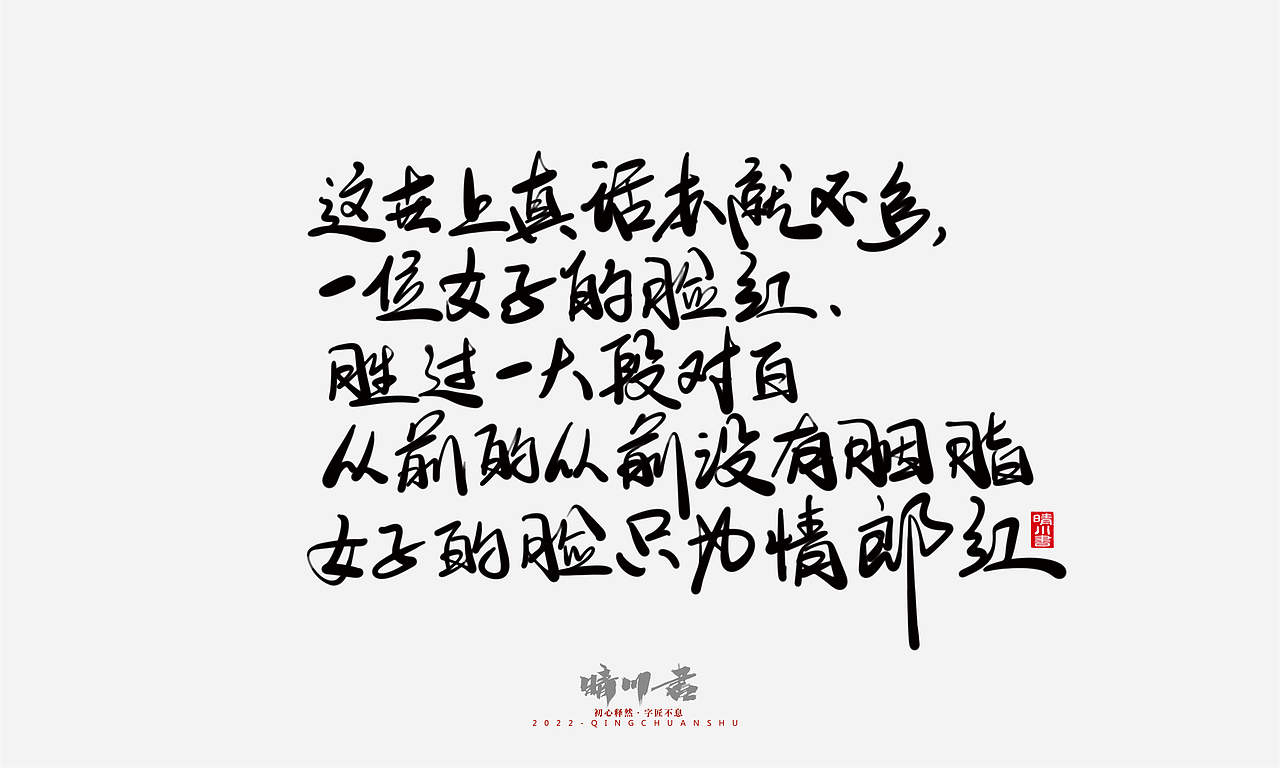 这世上真话本就不多,
一位女子的脸红、
胜过一大段对白
从前的从前没有胭脂
女子的脸只为情郎红
晴川書
晴川書
初心释然·字匠不息
2022-QINGCHUANSHU